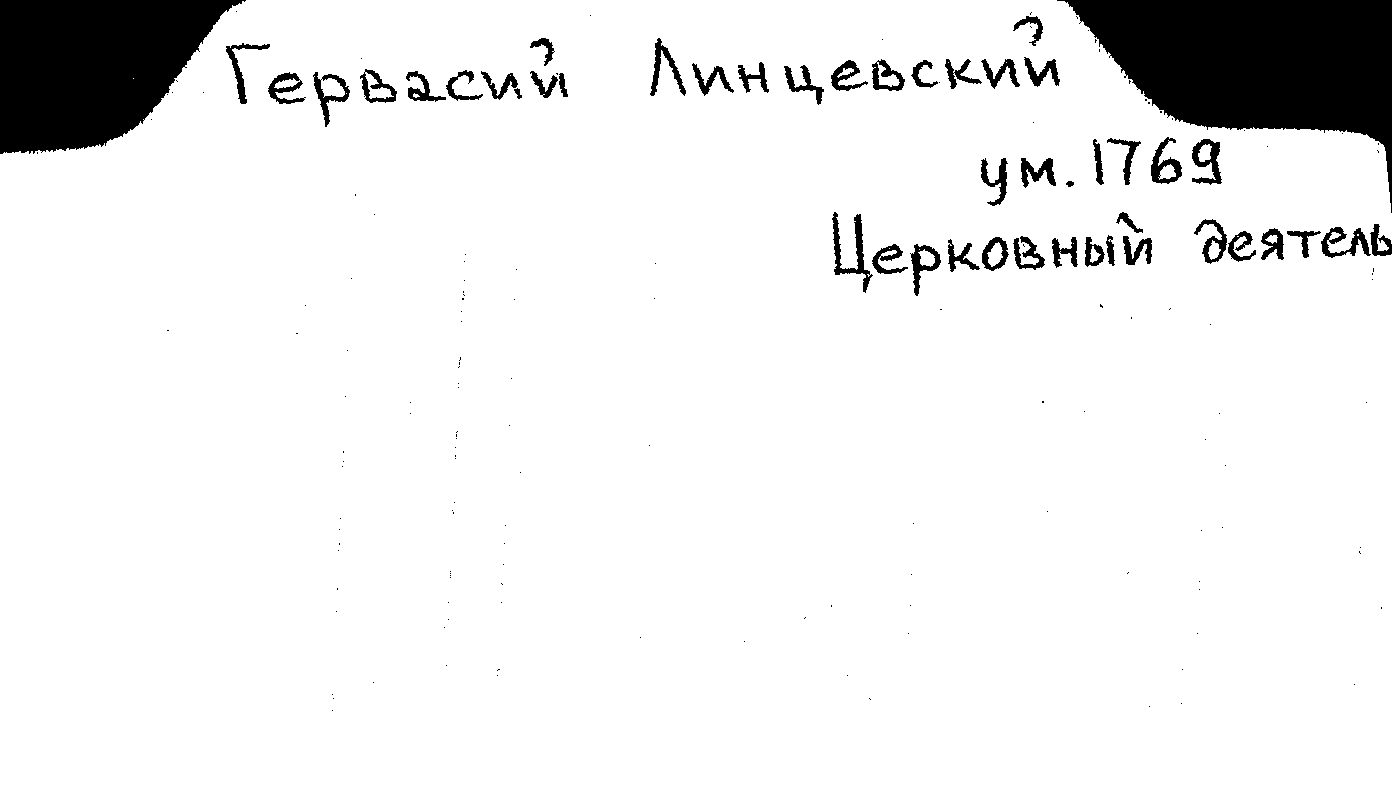 Гервасий Линцевский
ум. 1769
Церковный деятель